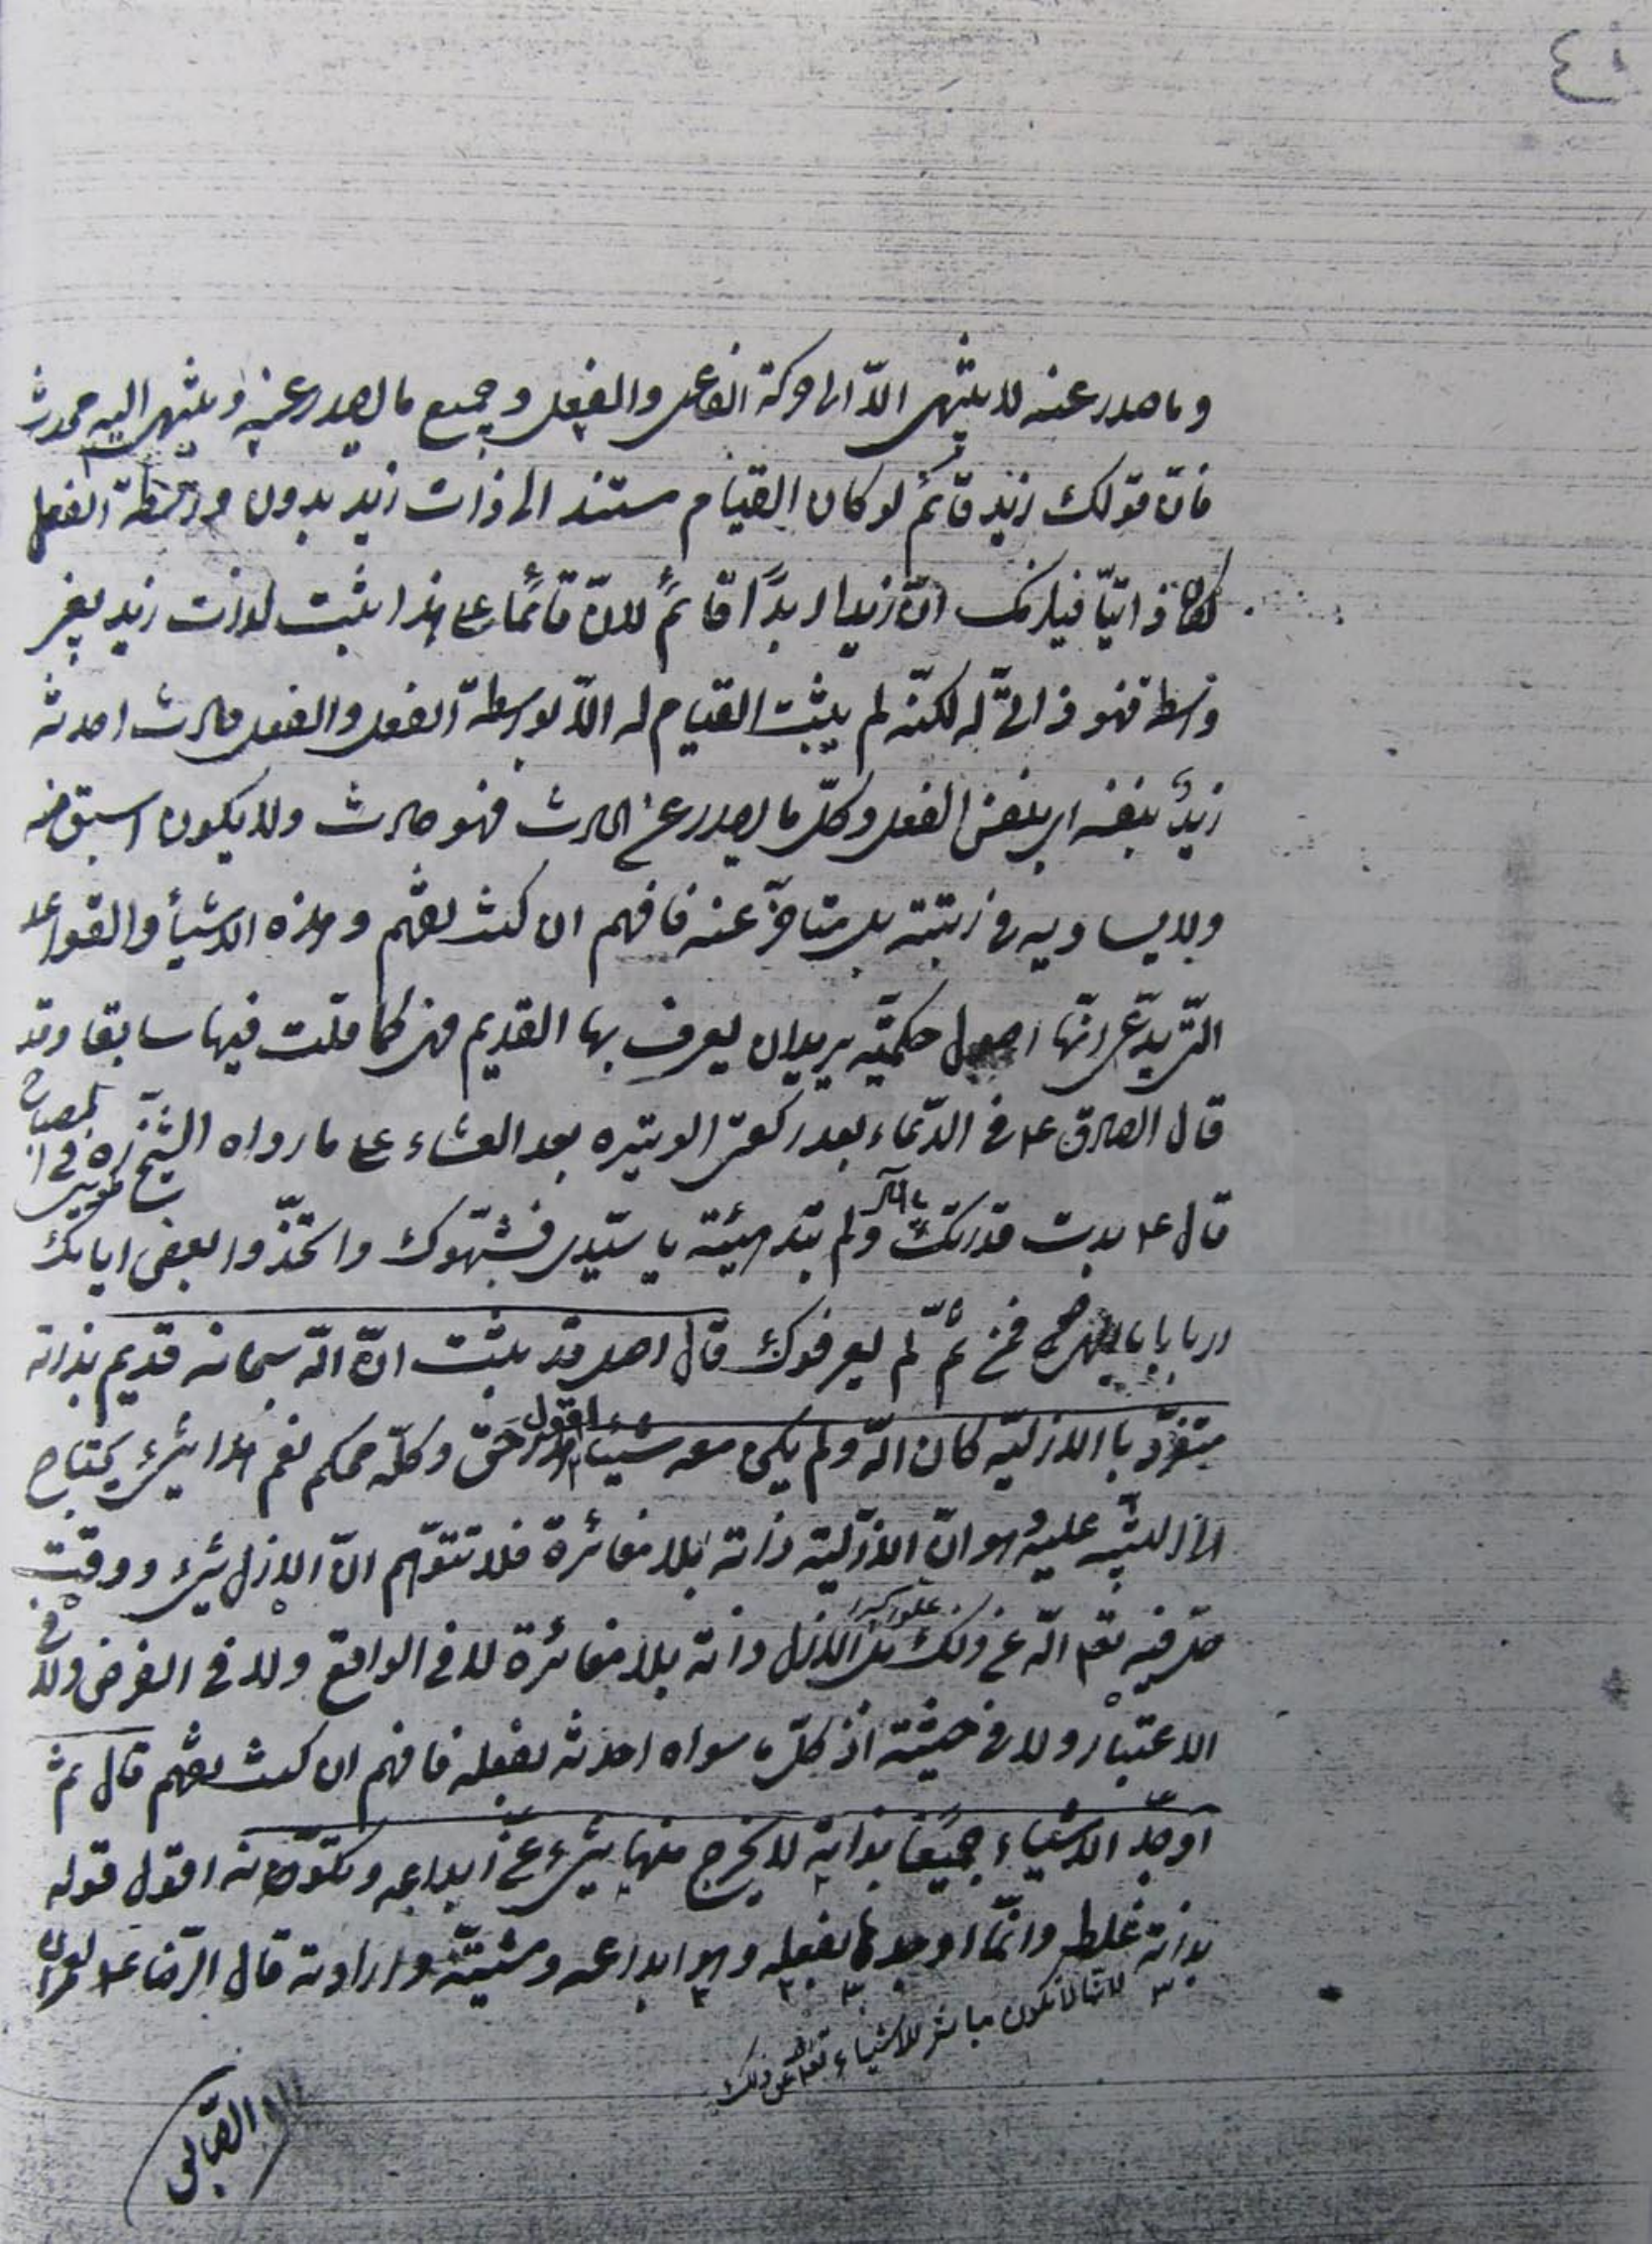 ٤١
وما صدر عنه لا ينتهى الّا الى حركة الفاعل والفعل وجميع ما يصدر عنه وينتهى اليه محدث
فانّ قولك زيد قائم لو كان القيام مستند الى ذات زيد بدون واسطة الفعل
لكان ذاتيّا فيلزمك انّ زيدا ابدًا قائمٌ لانّ قائمًا على هذا يثبت لذات زيد بغير
واسطة فهو ذاتىّ له لكنّه لم يثبت القيام له الّا بواسطة الفعل والفعل حادث احدثه
زيدٌ بنفسه اى بنفس الفعل وكلّ ما يصدر عن الحادث فهو حادث ولا يكون اسبق منه
ولا يساويه فى رتبته بل متاخّر عنه فافهم ان كنت تفهم وهذه الاشياء والقواعد
التى يدّعى انّها اصول حكميّه يريد ان يعرف بها القديم فهى كما قلت فيها سابقا وقد
قال الصادق ع فى الدّعاء بعد ركعتى الوتيره بعد العشاء على ما رواه الشيخ ره فى المصباح
قال ع بدت قدرتك يا الهى ولم تبد هيئة يا سيّدى فشبّهوك واتخذّوا بعض اياتك
اربابا يا الهى فمن ثمّ لم يعرفوك قال اصل قد يثبت انّ الله سبحانه قديم بذاته
متفرّد باالازليّه كان الله ولم يكن معه شيئا اقول هذا حقّ وكلّه محكم نعم هذا شىء يحتاج
الى التنبيه عليه وهو انّ الازليّة ذاته بلا مغائرة فلا تتوّهم انّ الازل شىء ووقت
حلّ فيه تعالى الله عن ذلك علوا كبيرا بل الازل ذاته بلا مغائرة لا فى الواقع ولا فى الفرض ولا فى
الاعتبار ولا فى حيثيّة اذ كلّ ما سواه احدثه بفعله فافهم ان كنت تفهم قال ثم
اوجد الاشياء جميعًا بذاته لا يخرج منها شىء عن ابداعه وتكوّنه اقول قوله
بذاته غلط وانّما اوجدها بفعله وهو ابداعه ومشيّته وارادته قال الرّضا ع لعمران
لانها لا تكون مباشر للاشياء تعالى الله عن ذلك
الصّابى